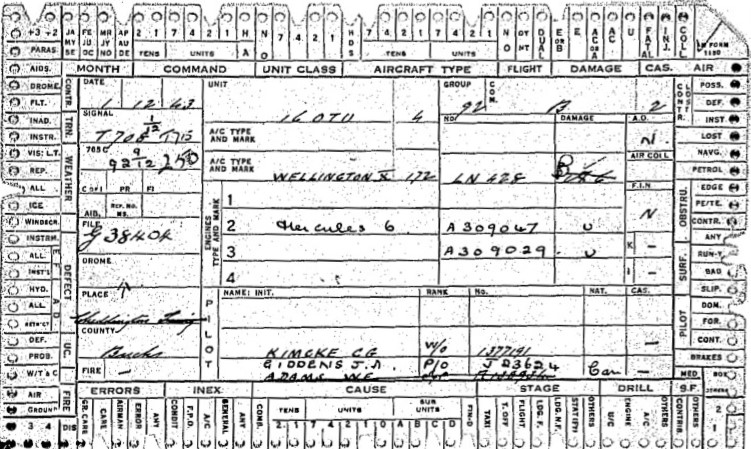 +3 +2 JA MY SE FE JU OC MR JY NO AP AU DE 2 1 7 4 2 1 H A N O 7 4 2 1 HDS 7 4 2 1 7 4 2 1 N O DY NT DUAL E OR B E AC OR A AC U FATAL INJ. COLL
PARAS. TENS UNITS TENS UNITS FORM 1180
AIDS. MONTH COMMAND UNIT CLASS AIRCRAFT TYPE FLIGHT DAMAGE CAS. AIR
DROME CONTR. DATE UNIT GROUP COM. CONTR. CLOSE POSS.
FLT. 1 12 43 16 OTU 4 92 B 2 DEF.
INAD. TRN. SIGNAL NO DAMAGE A.D. INST
INSTR. T 708 1/12 1715 A/C TYPE AND MARK N LOST
VIS: L.T. WEATHER 765C 9 AIR COLL NAVG.
REP. 9212 250 A/C TYPE AND MARK B PETROL
WELLINGTON X 172 LN 428
ALL COPI PR FI 1 F.I.N OBSTRU. EDGE
ICE REP. NO. MS. PE/TE.
WINDSCR. AIB. ENGINES TYPE AND MARK 2 Hercules 6 A309047 U N CONTR.
INSTRM. DEFECT FILE ANY
ALL G 38404 3 A309029 U K — SURF. RUN-Y
INST'S DROME BAD
HYD. 4 I — SLIP.
ALL PLACE PILOT NAME: INIT. RANK No. NAT. CAS. PILOT DOM.
RSTRICT FOR.
DEF. UC. COUNTY — CONT.
PROB. Bucks KIMCKE CG W/O 1377191 BRAKES
W/T & C FIRE — GIDDENS J.A. P/O J 23624 Can — MED BOX
ADAMS WE
AIR FIRE ERRORS INEX. CAUSE STAGE DRILL S.F.
GROUND GR. CARE CARE AIRMAN ERROR ANY CONDIT F.P.O. A/C GENERAL ANY COMB. TENS UNITS SUB UNITS FIN-D TAXI T. OFF FLIGHT LDG. F. LDG. N.F. OTHERS U/C ENGINE A/C OTHERS CONTRIB OTHERS 2
3 4 DIS 2 1 7 4 2 1 0 A B C D 1